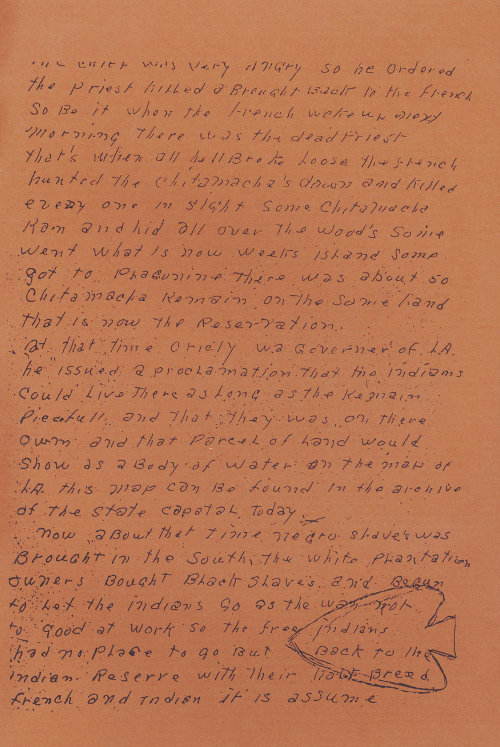 The chief was very angry so he ordered
the Priest killed & Brought Back to the french
So Be it when the french woke up next
morning There was the dead Priest
that's when all hell Broke Loose the french
hunted the Chitamacha's down and killed
every one in sight Some Chitamacha
Ran and hid all over the wood's Some
went what is now weeks island Some
got to Plaqumine There was about 50
Chitamacha Remain on the Same land
that is now the Reservation.
at that time Oriely wa Governer of LA.
he issued a proclamation that the indiams
Could Live There as Long as the Remain
Piecfull and that they was on there
own and that Parcel of Land would
Show as a Body of water on the map of
LA this map can Be found in the archive
of the State capotal Today.
now about that time negro slave's was
Brought in the South, the white Phantation
owners Bought Black Slave's and Begun
to Let the indians Go as the was not
to good at work so the free indians
had no Place to go But Back to the
indian Reserve with Their half Breed
french and indian it is assume